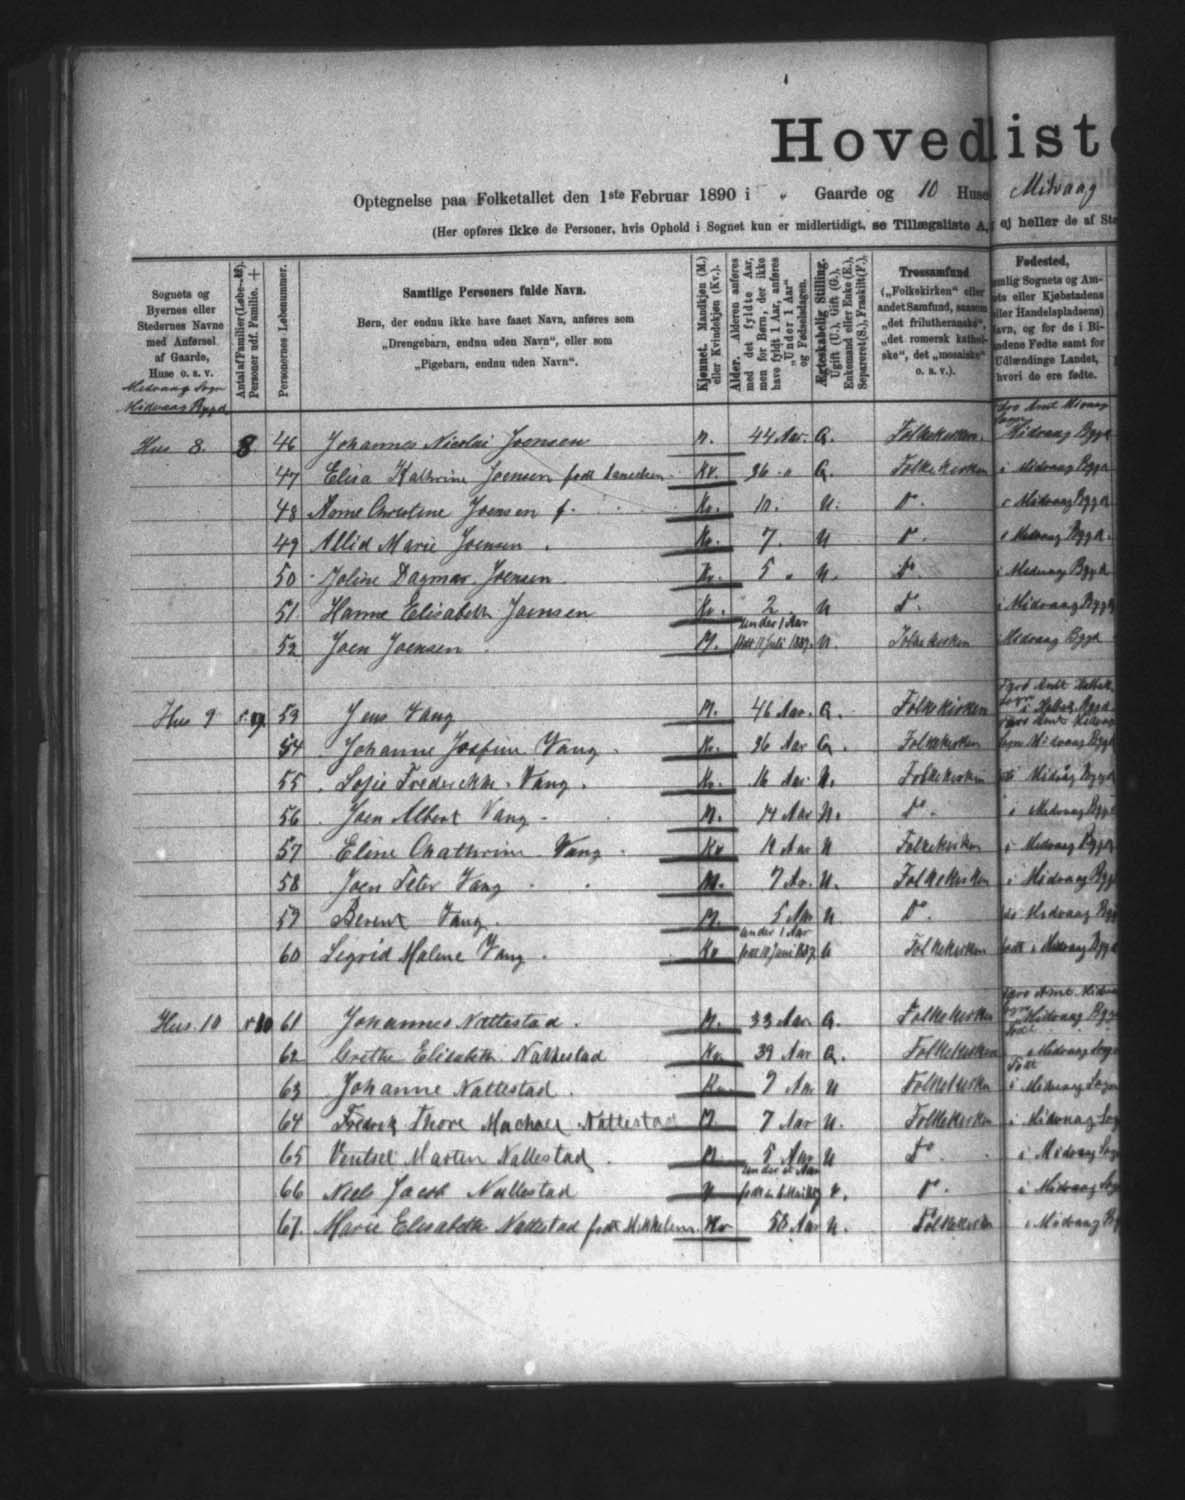 Hovedliste
Optegnelse paa Folketallet den 1ste Februar 1890 i " Gaarde og 10 Huse Midvaag
(Her opføres ikke de Personer, hvis Ophold i Sognet kun er midlertidigt, se Tillægsliste A, ej heller de af
Sognets og Byernes eller Stedernes Navne med Anførsel af Gaarde, Huse o. s. v.
Midvaag Sogn
Midvaag Bygd
Antal af Familier (Løbe-№). Personer udf. Familie. +
Personernes Løbenummer.
Samtlige Personers fulde Navn.
Børn, der endnu ikke have faaet Navn, anføres som
„Drengebarn, endnu uden Navn“, eller som
„Pigebarn, endnu uden Navn“.
Kjønnet. Mandkjøn (M.) eller Kvindekjøn (Kv.).
Alder. Alderen anføres med det fyldte Aar, men for Børn, der ikke have fyldt 1 Aar, anføres „Under 1 Aar“ og Fødselsdagen.
Ægteskabelig Stilling. Ugift (U.), Gift (G.), Enkemand eller Enke (E.), Separeret (S.), Fraskilt (F.).
Trossamfund
(„Folkekirken“ eller andet Samfund, saasom „det frilutheranske“, „det romersk katholske“, det „mosaiske“ o. s. v.).
Fødested,
Sognets og eller Kjøbstadens eller Handelspladsens) Navn, og for de i Bilandene Fødte samt for Udlændinge Landet, hvori de ere fødte.
Hus 8. 8 46 Johannes Nicolai Joensen M. 44 Aar. G. Folkekirken. Midvaag Bygd
47 Elisa Kathrine Joensen født Kv. 36 " G. Folkekirken i Midvaag Bygd
48 Christine Joensen Kv. U. Do. i Midvaag Bygd
49 Marie Joensen Kv. 7. U Do. i Midvaag Bygd.
50 Joline Dagmar Joensen Kv. 5 " U. Do. i Midvaag Bygd
51 Hanne Elisabeth Joensen Kv. 2 U Do. i Midvaag Bygd
52 Joen Joensen M. under 1 Aar født 11 Juli U. Folkekirken Midvaag Bygd
Hus 9 9. 53 Jens Vang M. 46 Aar. G. Folkekirken
54 Johanne Vang Kv. 36 Aar G. Folkekirken Sogn Midvaag Bygd
55 Sofie Fredrekke Vang. Kv. 16 Aar U. Folkekirken Bygd
56 Joen Albert Vang M. 14 Aar U. Do. i Midvaag Bygd
57 Eline Chathrine Vang Kv Aar U Folkekirken i Midvaag Bygd
58 Joen Peter Vang M. 7 Ar. U. Folkekirken i Midvaag Bygd
59 Berent Vang. M. 5 Aar U Do. Midvaag Bygd
60 Sigrid Malene Vang Kv under 1 Aar Juni U Folkekirken født i Midvaag Bygd
Hus 10 10 61 Johannes Nattestad. M. 33 Aar G. Folkekirken Midvaag Bygd
62 Grethe Elisabeth Nattestad Kv. 39 Aar G. Folkekirken Født i Midvaag Sogn
63 Johanne Nattestad. Kv. 9 Aar U Folkekirken Født i Midvaag Sogn
64 Fredrik Thore Nattestad M. 7 Aar U. Folkekirken i Midvaag Sogn
65 Martin Nattestad M 5 Aar U Do. i Midvaag Sogn
66 Niels Jacob Nattestad Do. i Midvaag Sogn
67. Marie Elisabeth Nattestad født Kv 58 Aar U. Folkekirken i Midvaag